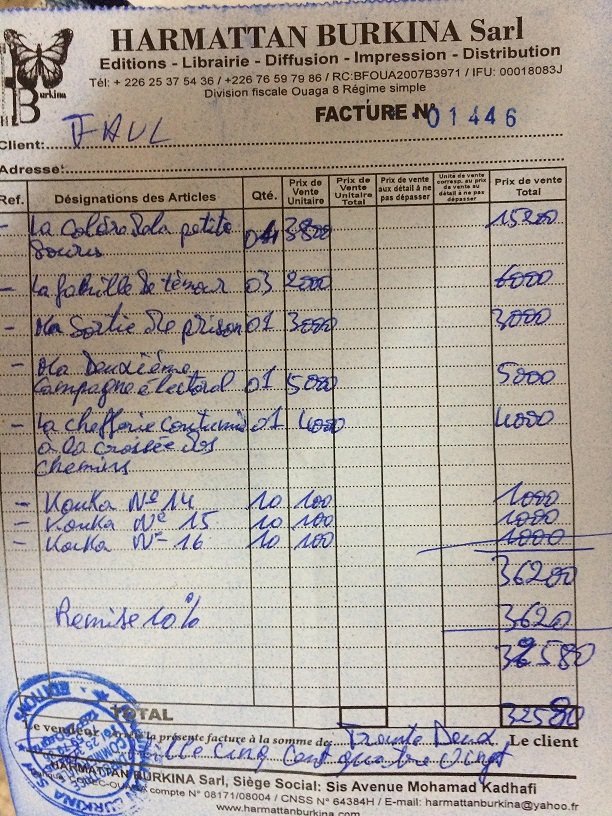 HARMATTAN BURKINA Sarl
Editions - Librairie - Diffusion - Impression - Distribution
Tél: + 226 25 37 54 36 / +226 76 59 79 86 / RC:BFOUA2007B3971 / IFU: 00018083J
Division fiscale Ouaga 8 Régime simple
Burkina
FACTURE N° 01446
Client:
Adresse:
Ref. Désignations des Articles Qté. Prix de Vente Unitaire Prix de Vente Unitaire Total Prix de vente aux détail à ne pas dépasser Unité de vente corresp. au prix de vente au détail à ne pas dépasser Prix de vente Total
- La colère de la petite 04 3800 15200
souris
- La famille de 03 2000 6000
- Ma Sortie de prison 01 3000 3000
- Ma Deuxième
Campagne électoral 01 5000 5000
- La chefferie 01 4000 4000
à la croisée des
chemins
- Kouka N° 14 10 100 1000
- Kouka N° 15 10 100 1000
- Kouka N° 16 10 100 1000
36200
Remise 10% 3620
32580
TOTAL 32580
Le vendeur la présente facture à la somme de Trente Deux Le client
mille cinq cent quatre Vingt
HARMATTAN BURKINA Sarl, Siège Social: Sis Avenue Mohamad Kadhafi
compte N° 08171/08004 / CNSS N° 64384H / E-mail: harmattanburkina@yahoo.fr
www.harmattanburkina.com